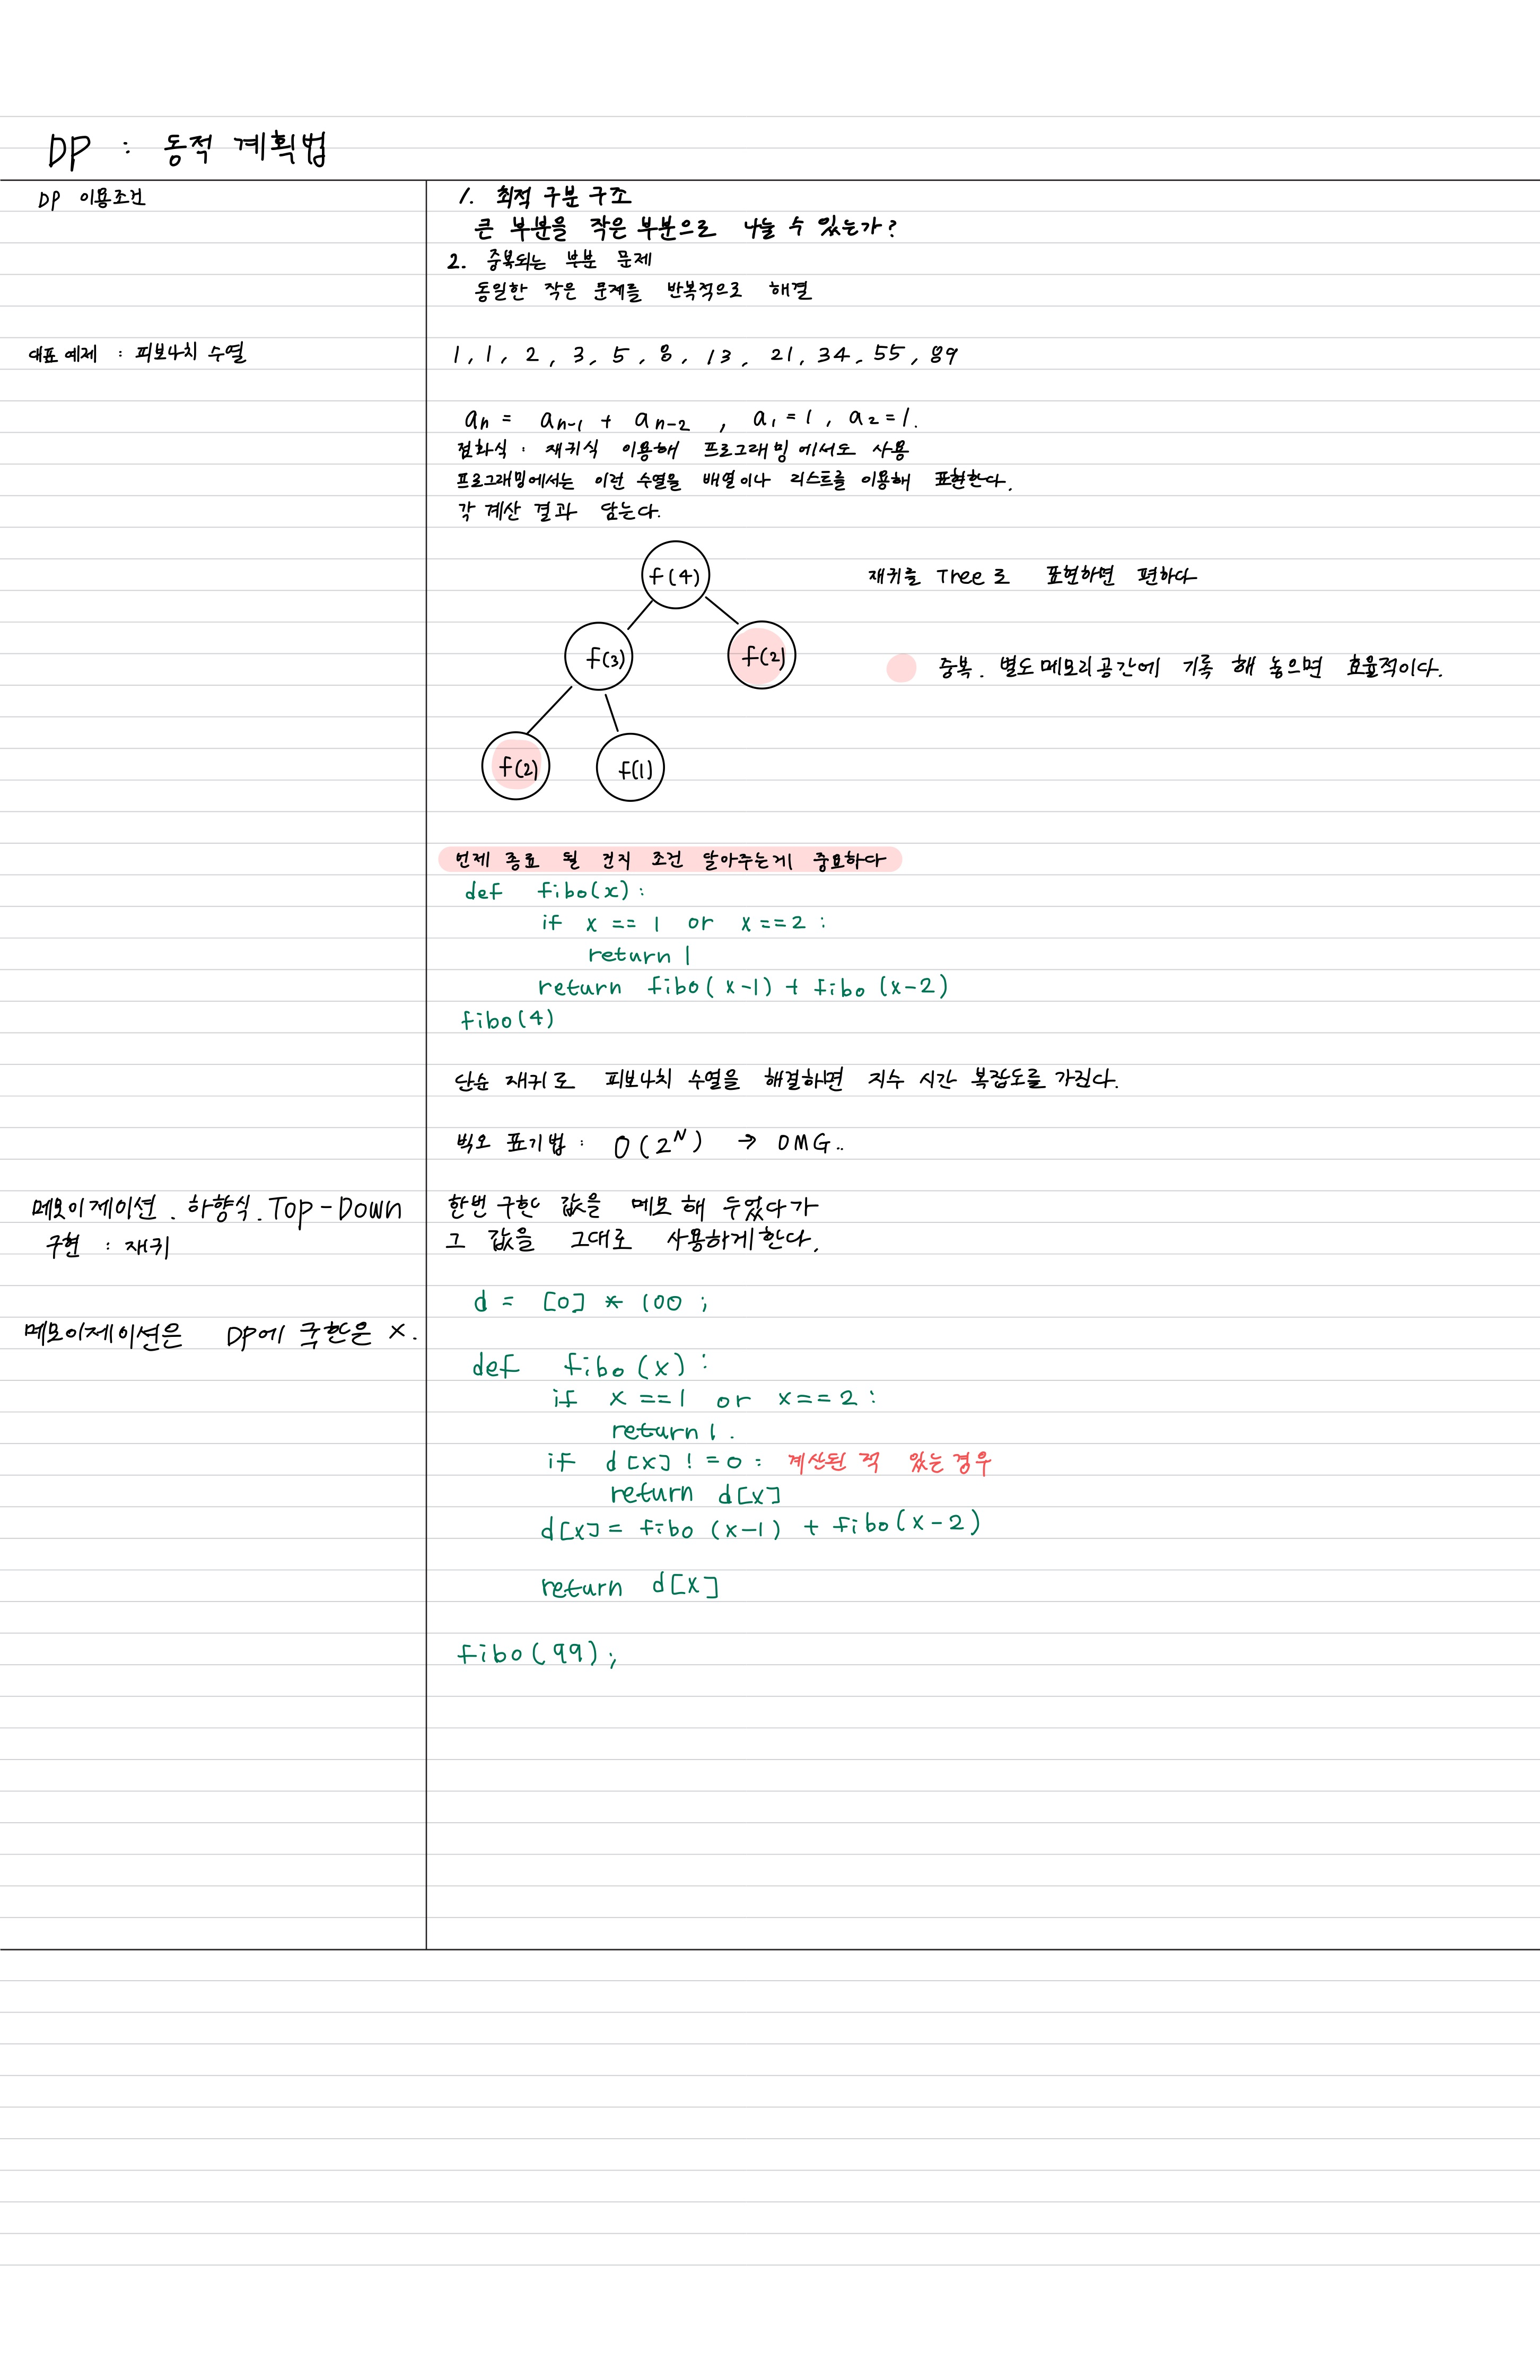 DP : 동적 계획법
DP 이용조건
1. 최적 구분 구조
큰 부분을 작은 부분으로 나눌 수 있는가?
2. 중복되는 부분 문제
동일한 작은 문제를 반복적으로 해결
대표 예제 : 피보나치 수열
1, 1, 2, 3, 5, 8, 13, 21, 34, 55, 89
aₙ = aₙ₋₁ + aₙ₋₂ , a₁ = 1, a₂ = 1.
점화식 : 재귀식 이용해 프로그래밍에서도 사용
프로그래밍에서는 이런 수열을 배열이나 리스트를 이용해 표현한다.
각 계산 결과 담는다.
f(4)
재귀를 Tree로 표현하면 편하다
f(3)
f(2)
중복. 별도 메모리 공간에 기록 해 놓으면 효율적이다.
f(2)
f(1)
언제 종료 될 건지 조건 달아주는게 중요하다
def fibo(x):
if x == 1 or x==2 :
return 1
return fibo(x-1) + fibo(x-2)
fibo(4)
단순 재귀로 피보나치 수열을 해결하면 지수 시간 복잡도를 가진다.
빅오 표기법 : O(2ᴺ) → OMG..
메모이제이션. 하향식. Top-Down
구현 : 재귀
한번 구한 값을 메모 해 두었다가
그 값을 그대로 사용하게한다.
d = [0] * 100 ;
메모이제이션은 DP에 국한은 x.
def fibo(x) :
if x ==1 or x==2 :
return 1.
if d[x] != 0 : 계산된 적 있는 경우
return d[x]
d[x] = fibo(x-1) + fibo(x-2)
return d[x]
fibo(99);